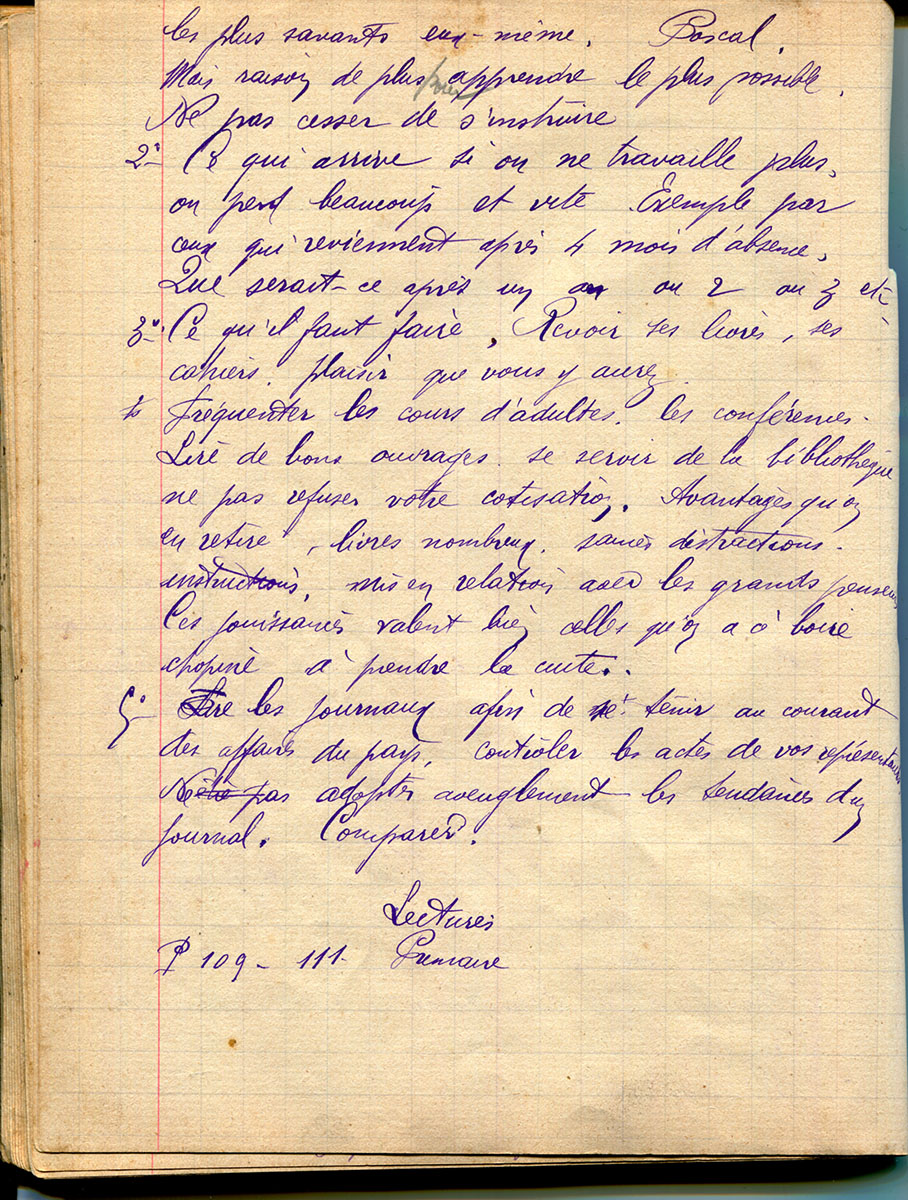 les plus savants eux-même. Pascal.
Mais raison de plus pour apprendre le plus possible.
Ne pas cesser de s'instruire
2° Ce qui arrive si on ne travaille plus,
on perd beaucoup et vite. Exemple par
ceux qui reviennent après 4 mois d'absence,
Que serait-ce après un an ou 2 ou 3 etc
3° Ce qu'il faut faire, Revoir ses livres, ses
cahiers. plaisir que vous y aurez.
4° Fréquenter les cours d'adultes. les conférences.
Lire de bons ouvrages. se servir de la bibliothèque
ne pas refuser votre cotisation. Avantages qu'on
en retire, livres nombreux. saines distractions.
instructions, mis en relation avec les grands penseurs
Ces jouissances valent bien celles qu'on a à boire
chopine à prendre la cuite.
5° Lire les journaux afin de se tenir au courant
des affaires du pays, contrôler les actes de vos représentants
Ne pas adopter aveuglement les tendances d'un
journal. Comparer.
Lectures
P 109 - 111. Primaire